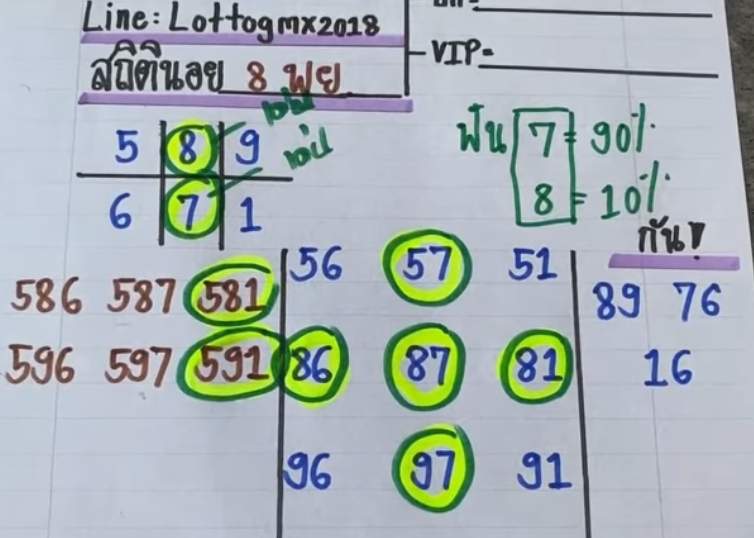 Line: Lottogmx2018
VIP=
สถิตินอย 8 พย
5 8 9
6 7 1
ฟัน 7 = 90%
8 = 10%
กัน!
56 57 51
586 587 581
89 76
596 597 591
86 87 81
16
96 97 91